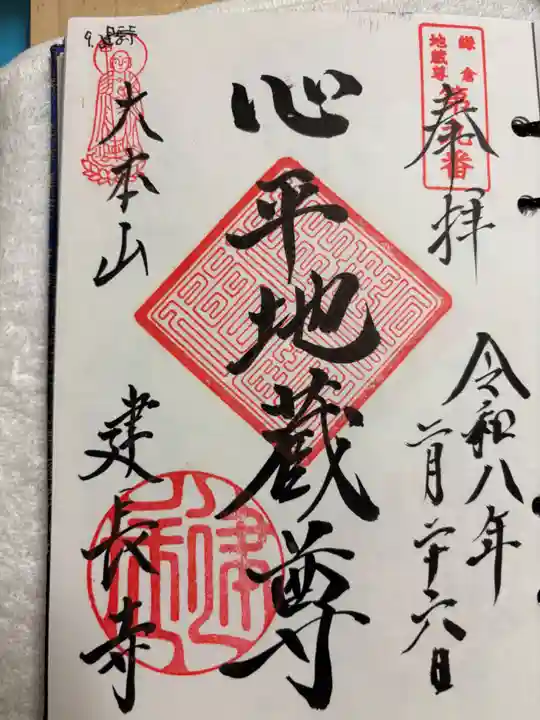 鎌倉
地蔵尊
第九番
奉拝
令和八年
二月二十六日
心平地蔵尊
大本山
建長寺